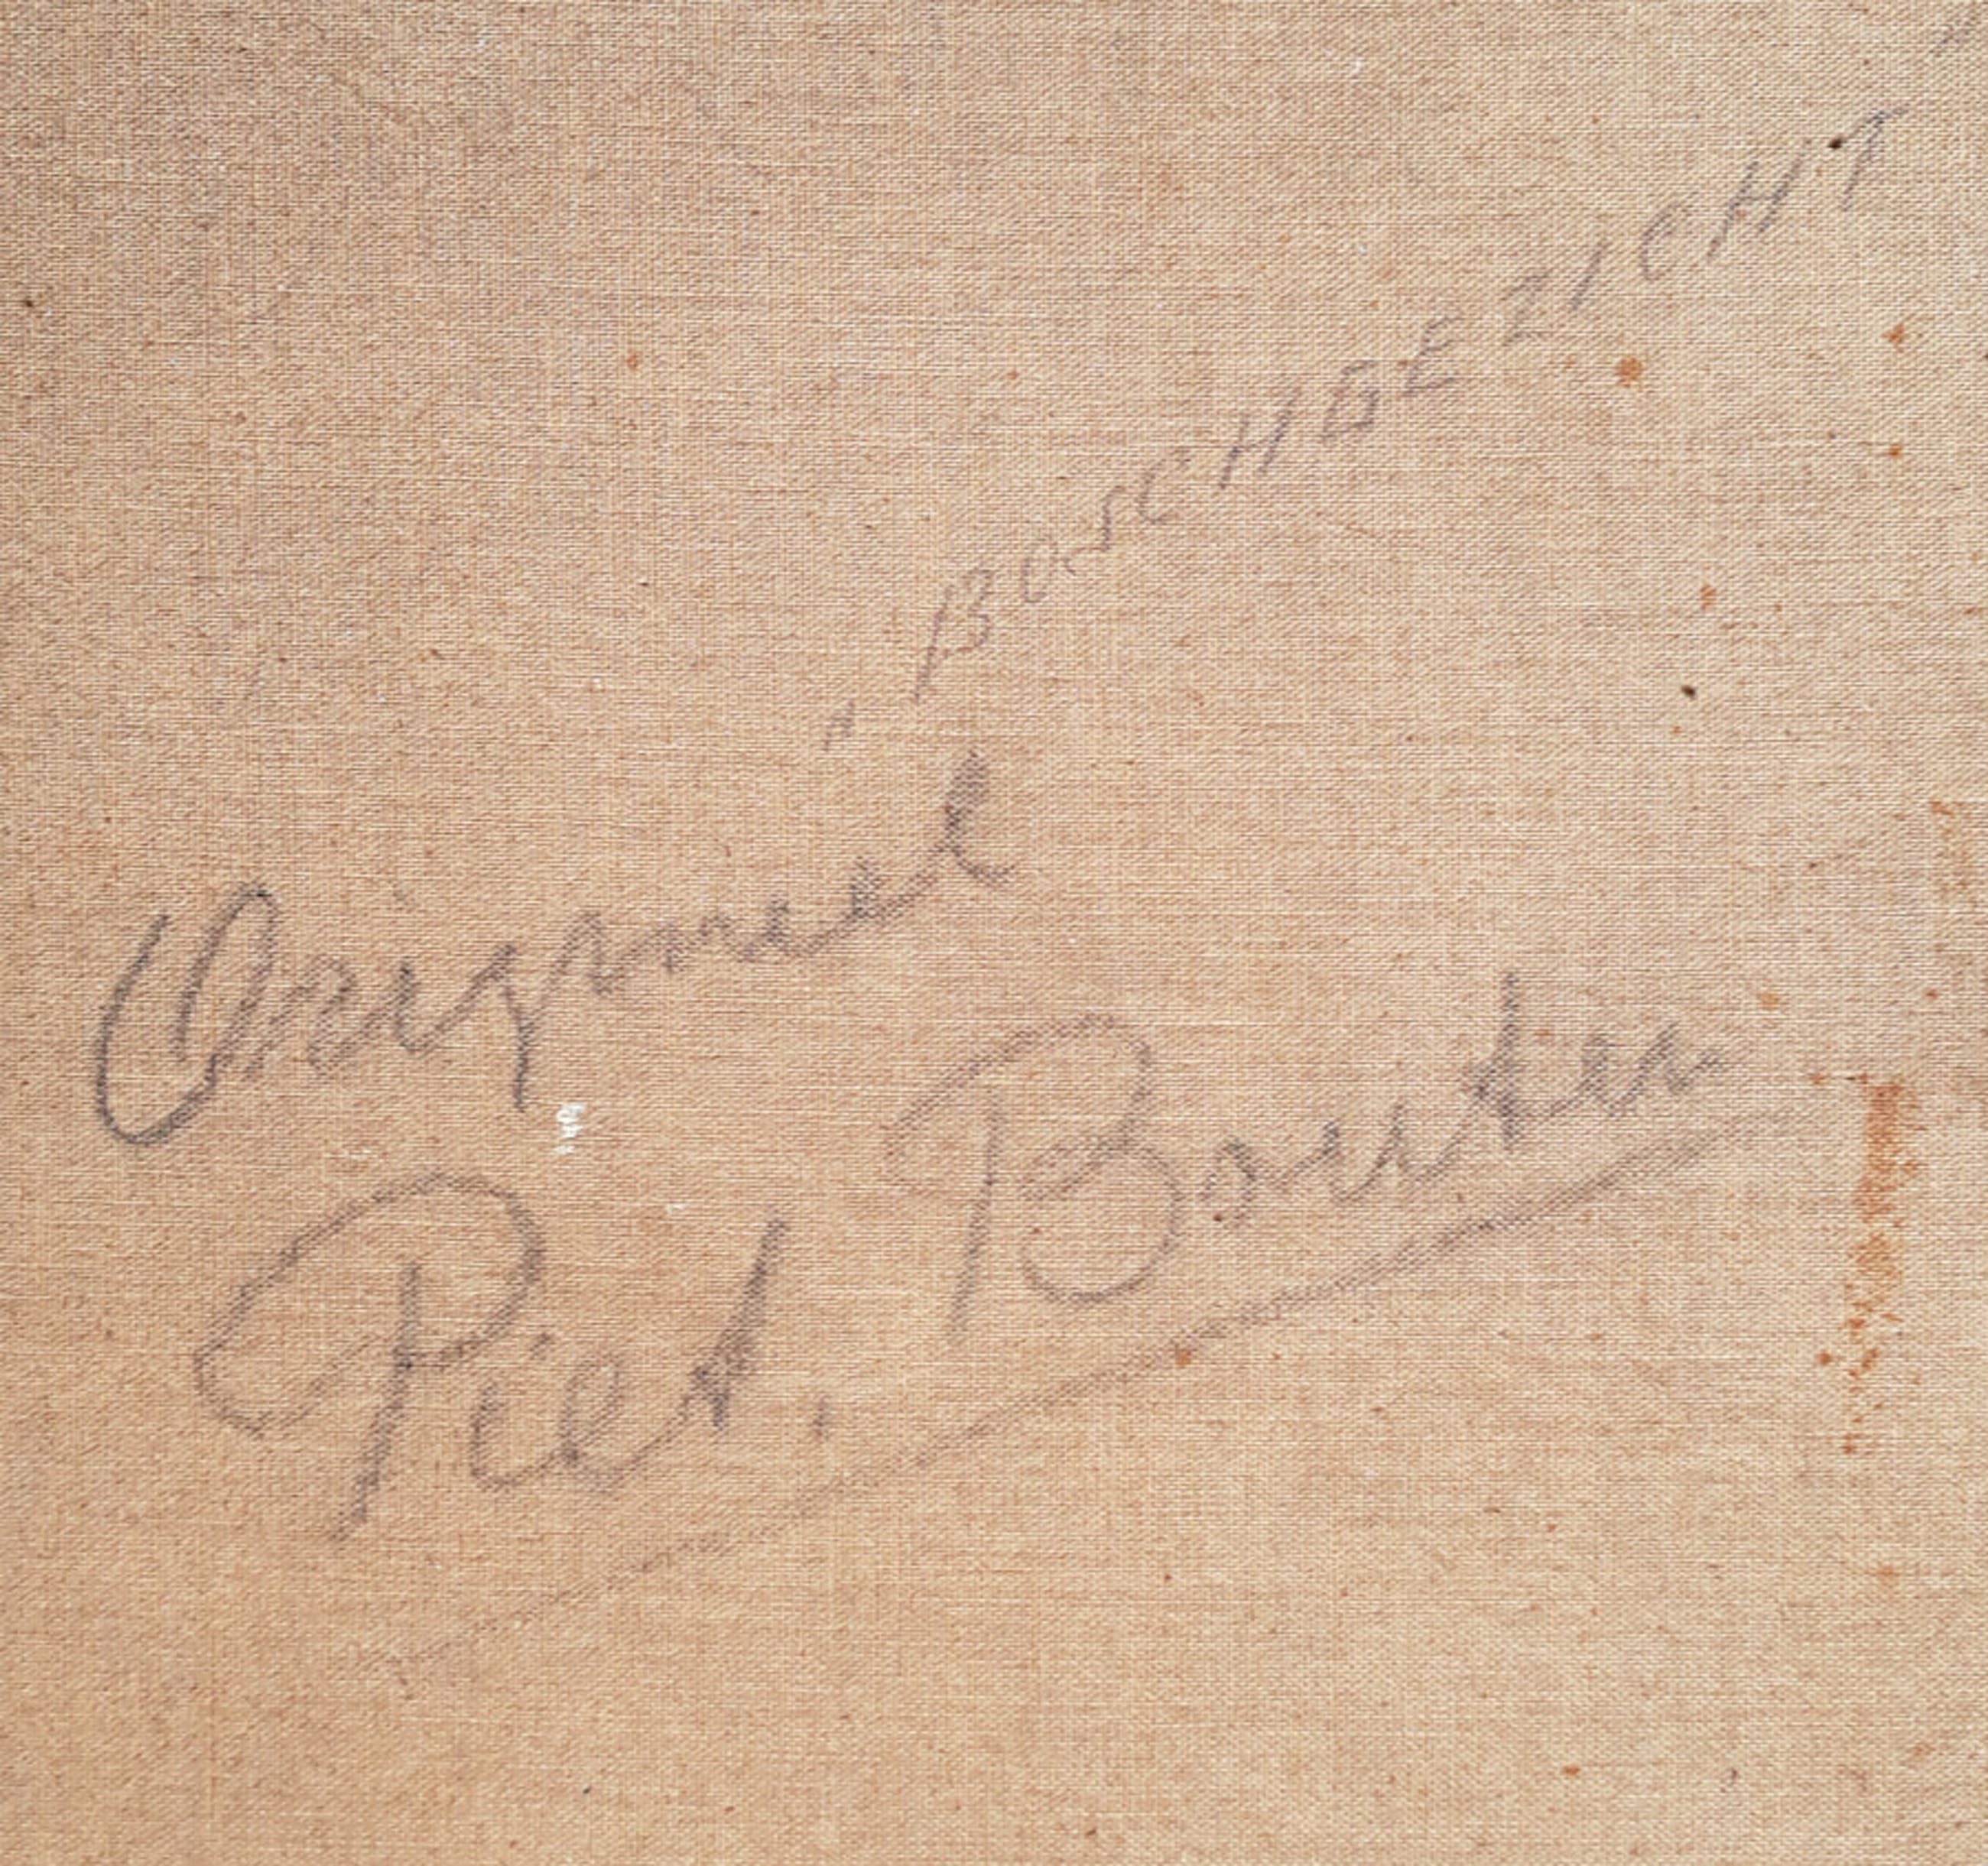 " BOSCHGEZICHT
Origineel
Piet. Bouter